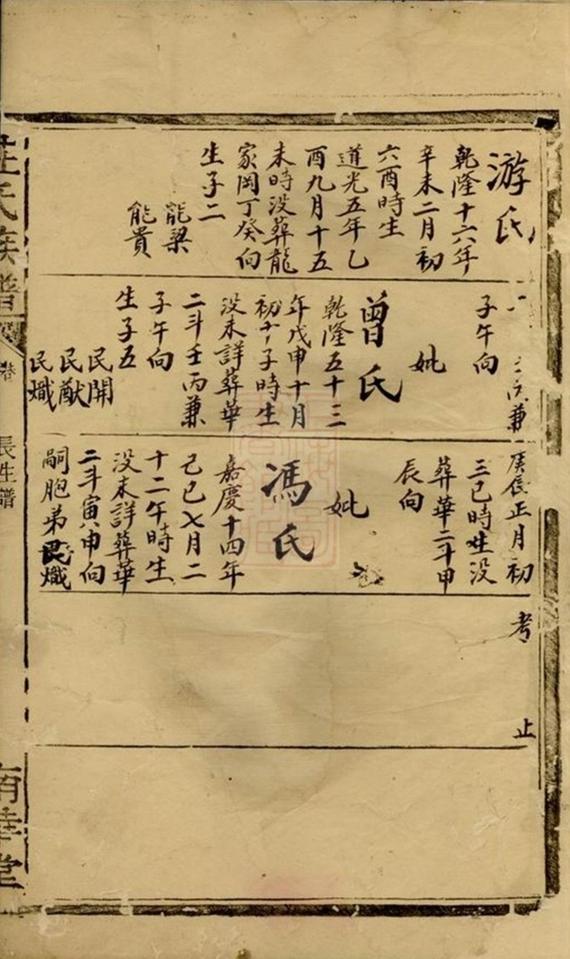 游氏
乾隆十六年
辛未二月初
六酉時生
道光五年乙
酉九月十五
未時没葬龍
家岡丁癸向
生子二
能梁
能貴
子午向
妣
曾氏
乾隆五十三
年戊申十月
初十子時生
没未詳葬華
二斗壬丙兼
子午向
生子五
民開
民猷
民熾
庚辰正月初
三巳時生没
葬華二斗甲
辰向
妣
馮氏
嘉慶十四年
己巳七月二
十二午時生
没未詳葬華
二斗寅申向
嗣胞弟民熾
考
止
氏族譜
卷
長生譜
南華堂